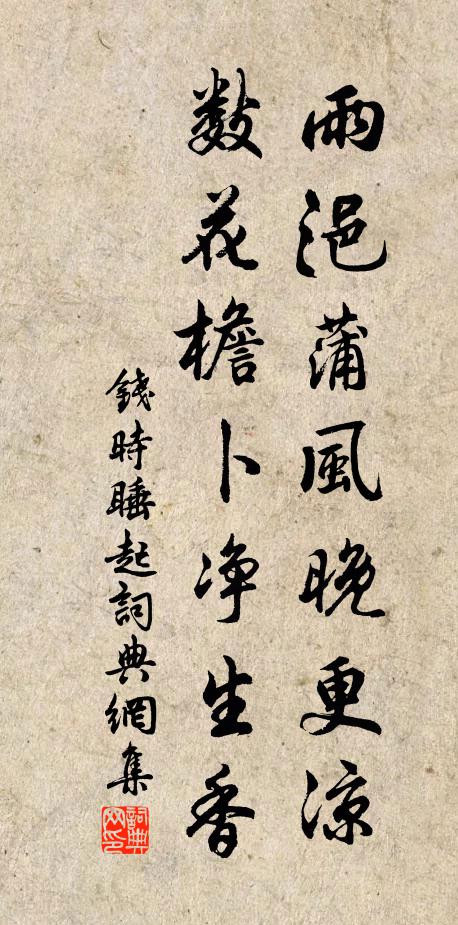 雨浥蒲風晚更涼
數花檐卜净生香
錢時睡起詞典網集
詞典網印